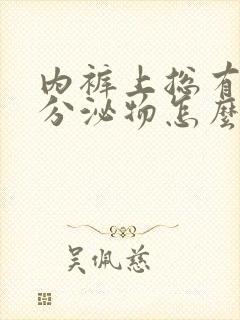 内裤上总有
分泌物怎麼
吴佩慈